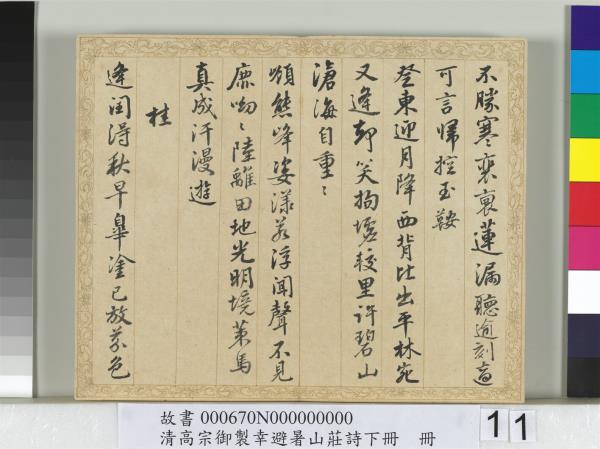 不勝寒衷裏蓮漏聽逾刻奇
可言歸控玉鞍
登東迎月降西背比出平林宛
又逢却笑拘墟較里許碧山
滄海自重〻
頌熊峰姿漾若浮聞聲不見
鹿呦〻陸離田地光明境策馬
真成汗漫遊
桂
逢閏得秋早皋塗已放芬色
故書 000670N000000000
清高宗御製幸避暑山莊詩下冊 冊
11